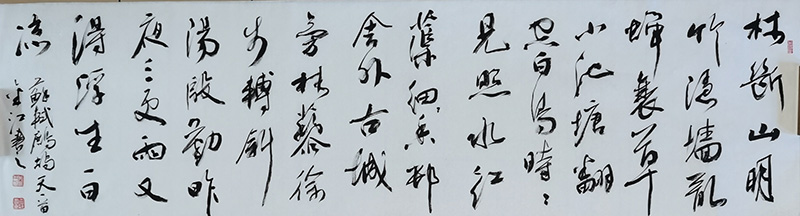 林斷山明
竹隱墻亂
蟬衰草
小池塘翻
空白鳥時〻
見照水紅
蕖細〻香邨
舍外古城
旁杖藜徐
步轉斜
陽殷勤昨
夜三更雨又
得浮生一日
涼
蘇軾鷓鴣天一首
江書